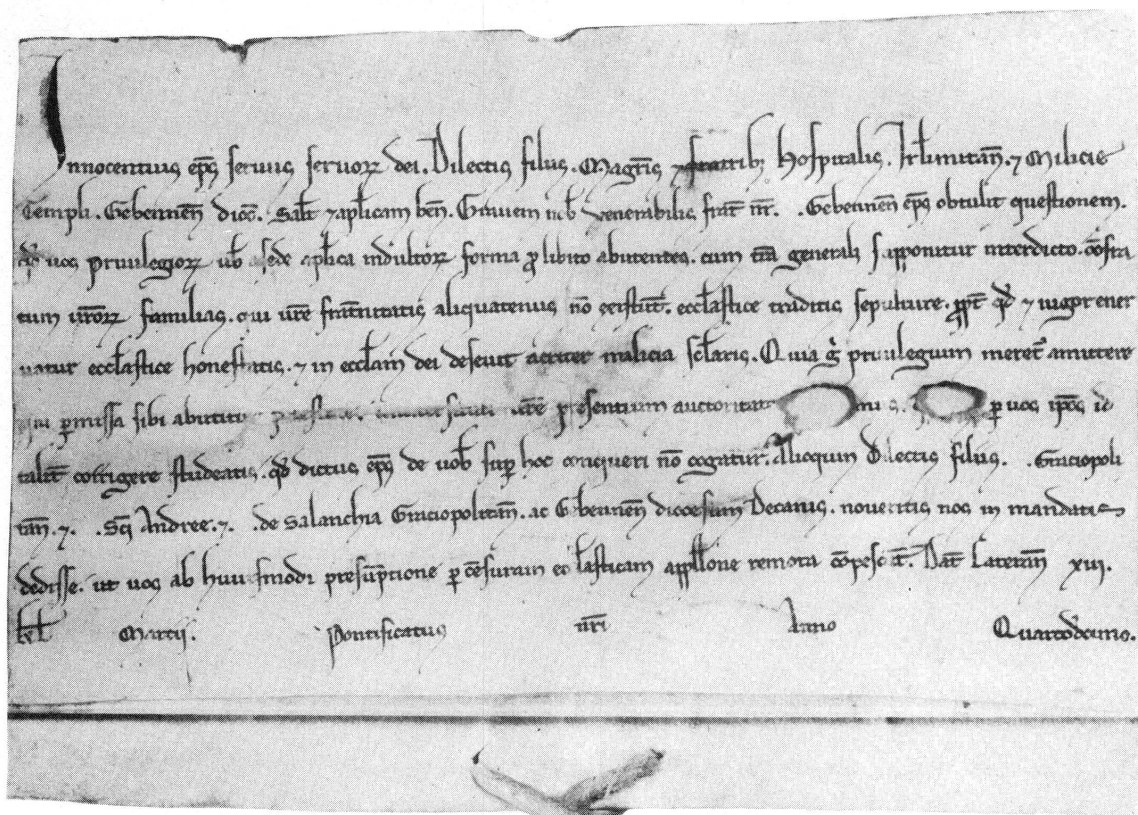 Innocentius ep̄s seruus seruoꝝ dei. Dilectis filiis. Magr̄is ⁊ fratribꝫ Hospitalis. Ier̄limitan̄. ⁊ Milicie
Templi. Gebennen̄ dioc̄. Sal̄t ⁊ ap̄licam ben̄. Grauem nob̄ venerabilis frat̄ nr̄. . Gebennen̄ ep̄s obtulit questionem.
qd̄ uos priuilegioꝝ uob̄ a sede ap̄lica indultoꝝ forma ꝓ libito abutentes. cum tr̄a generali supponitur interdicto. cōfra
tum ur̄oꝝ familias. qui ur̄e frat̄nitatis aliquatenus nō existūt. eccl̄astice traditis sepulture. ꝓpt̄ qd̄ ⁊ uigor ener
uatur eccl̄astice honestatis. ⁊ in eccl̄am dei deseuit acriter malicia sc̄laris. Quia g̊ priuilegium meret̄ amittere
qui ꝑmissa sibi abutitur ur̄e presentium auctoritate ꝑ uos ip̄os id
talit̄ corrigere studeatis. qd̄ dictus ep̄s de uob̄ suꝑ hoc conqueri nō cogatur. Alioquin Dilectis filiis. . Graciopoli
tan̄. ⁊. . Sc̄i Andree. ⁊. . de Salanchia Graciopolitan̄. ac Gebennen̄ diocesum Decanis. noueritis nos in mandatis
dedisse. ut uos ab huiusmodi presūptione ꝑ cēsuram eccl̄asticam appll̄one remota cōpescāt. Dat̄ Lateran̄ xiij.
kl̄ Martij. Pontificatus nr̄i Anno Quartodecimo.